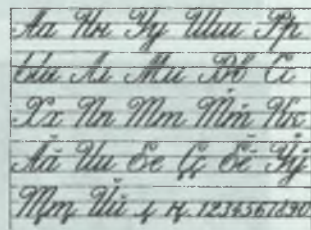 Аа Нн Уу Шш Рр
Лл Мм Вв Сс
Хх Пп Тт Кк
Ӑӑ Ии Ее Ҫҫ Ӗӗ Ӳӳ
Йй 1234567890